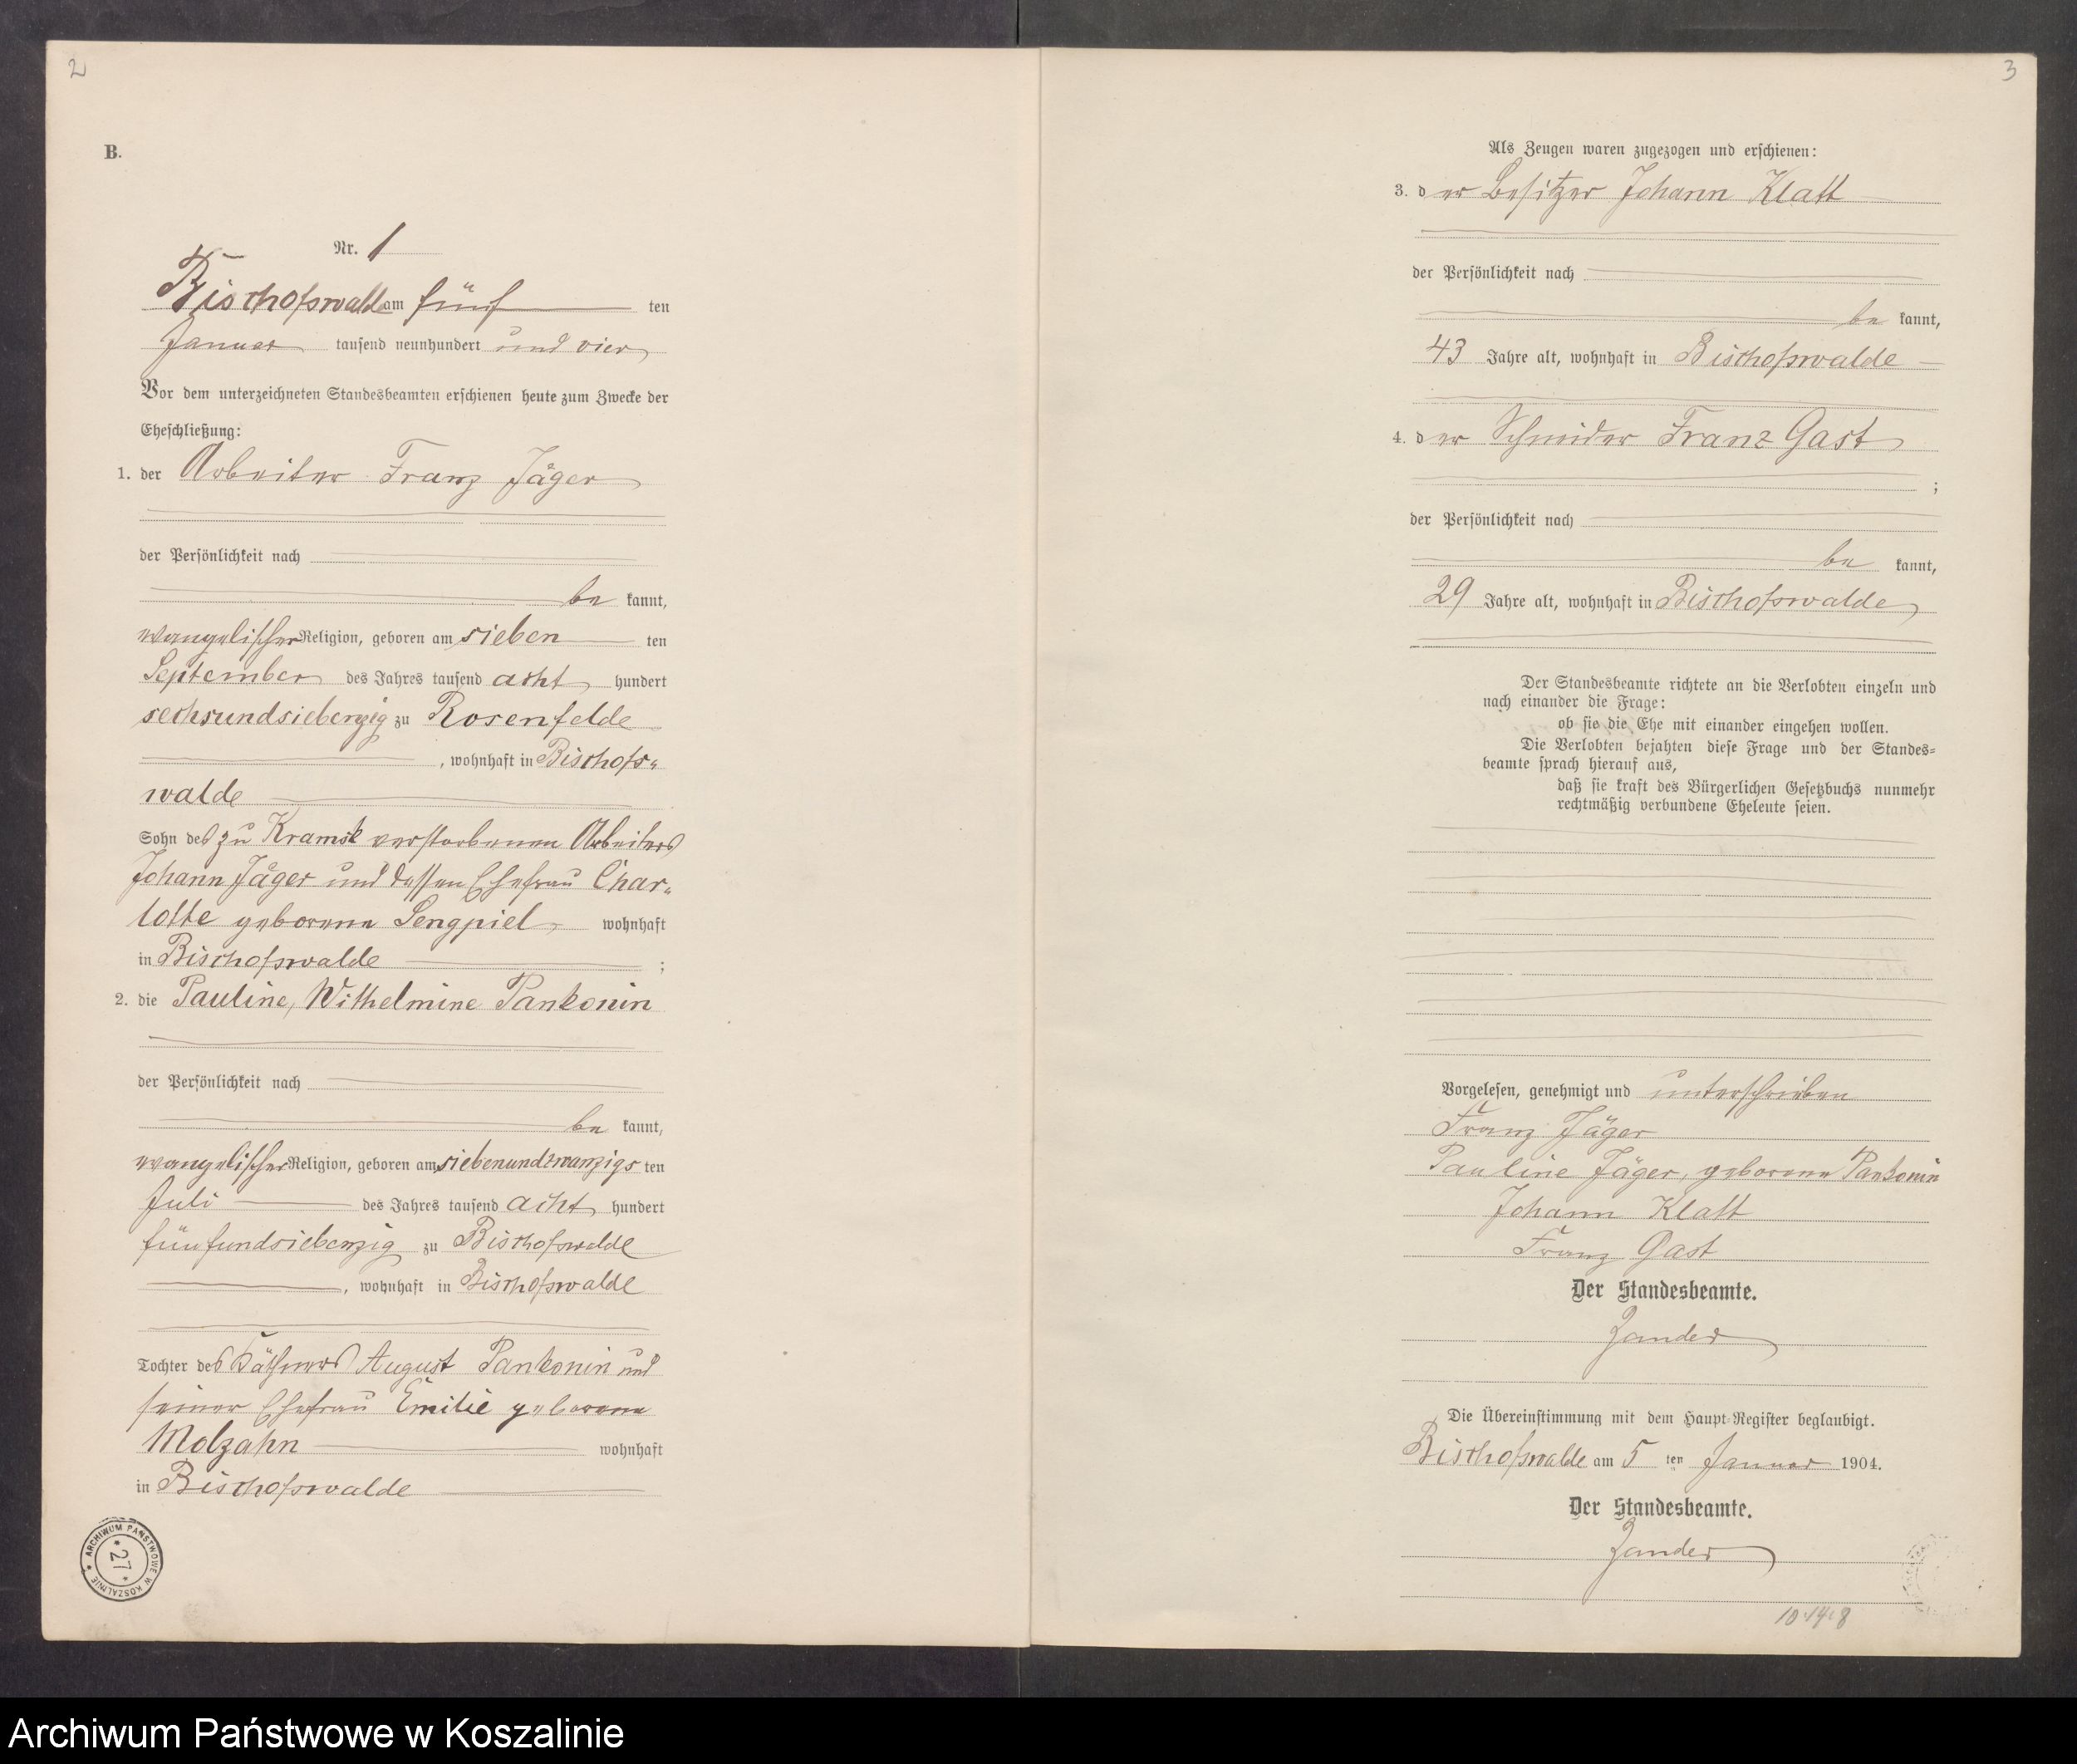 2
B.
Nr. 1
Bischofswalde am fünf ten
Januar tausend neunhundert und vier
Vor dem unterzeichneten Standesbeamten erschienen heute zum Zwecke der
Eheschließung:
1. der Arbeiter Franz Jäger
der Persönlichkeit nach
be kannt,
evangelischer Religion, geboren am sieben ten
September des Jahres tausend acht hundert
sechsundsiebenzig zu Rosenfelde
, wohnhaft in Bischofs-
walde
Sohn des zu Kramsk verstorbenen Arbeiters
Johann Jäger und dessen Ehefrau Char-
lotte geborene Sengpiel, wohnhaft
in Bischofswalde ;
2. die Pauline, Wilhelmine Pankonin
der Persönlichkeit nach
be kannt,
evangelischer Religion, geboren am siebenundzwanzigs ten
Juli des Jahres tausend acht hundert
fünfundsiebenzig zu Bischofswalde
, wohnhaft in Bischofswalde
Tochter des Käthners August Pankonin und
seiner Ehefrau Emilie geborene
Molzahn wohnhaft
in Bischofswalde
ARCHIWUM PAŃSTWOWE W KOSZALINIE
* 27 *
3
Als Zeugen waren zugezogen und erschienen:
3. der Besitzer Johann Klatt
der Persönlichkeit nach
be kannt,
43 Jahre alt, wohnhaft in Bischofswalde
4. der Schneider Franz Gast
;
der Persönlichkeit nach
be kannt,
29 Jahre alt, wohnhaft in Bischofswalde
Der Standesbeamte richtete an die Verlobten einzeln und
nach einander die Frage:
ob sie die Ehe mit einander eingehen wollen.
Die Verlobten bejahten diese Frage und der Standes-
beamte sprach hierauf aus,
daß sie kraft des Bürgerlichen Gesetzbuchs nunmehr
rechtmäßig verbundene Eheleute seien.
Vorgelesen, genehmigt und unterschrieben
Franz Jäger
Pauline Jäger, geborene Pankonin
Johann Klatt
Franz Gast
Der Standesbeamte.
Zander
Die Übereinstimmung mit dem Haupt-Register beglaubigt.
Bischofswalde am 5 ten Januar 1904.
Der Standesbeamte.
Zander
Archiwum Państwowe w Koszalinie